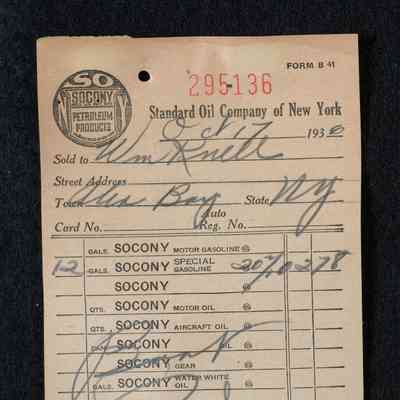 FORM B 41
SO
SOCONY
NY
PETROLEUM
PRODUCTS
295136
Standard Oil Company of New York
Oct 17 1930
Sold to Wm Knell
Street Address
Town Alex Bay State NY
Card No. Auto Reg. No.
GALS. SOCONY MOTOR GASOLINE @
12 GALS. SOCONY SPECIAL GASOLINE @ 20 2 78
SOCONY @
QTS. SOCONY MOTOR OIL @
QTS. SOCONY AIRCRAFT OIL @
SOCONY @
SOCONY GEAR @
GALS. SOCONY WATER WHITE OIL @